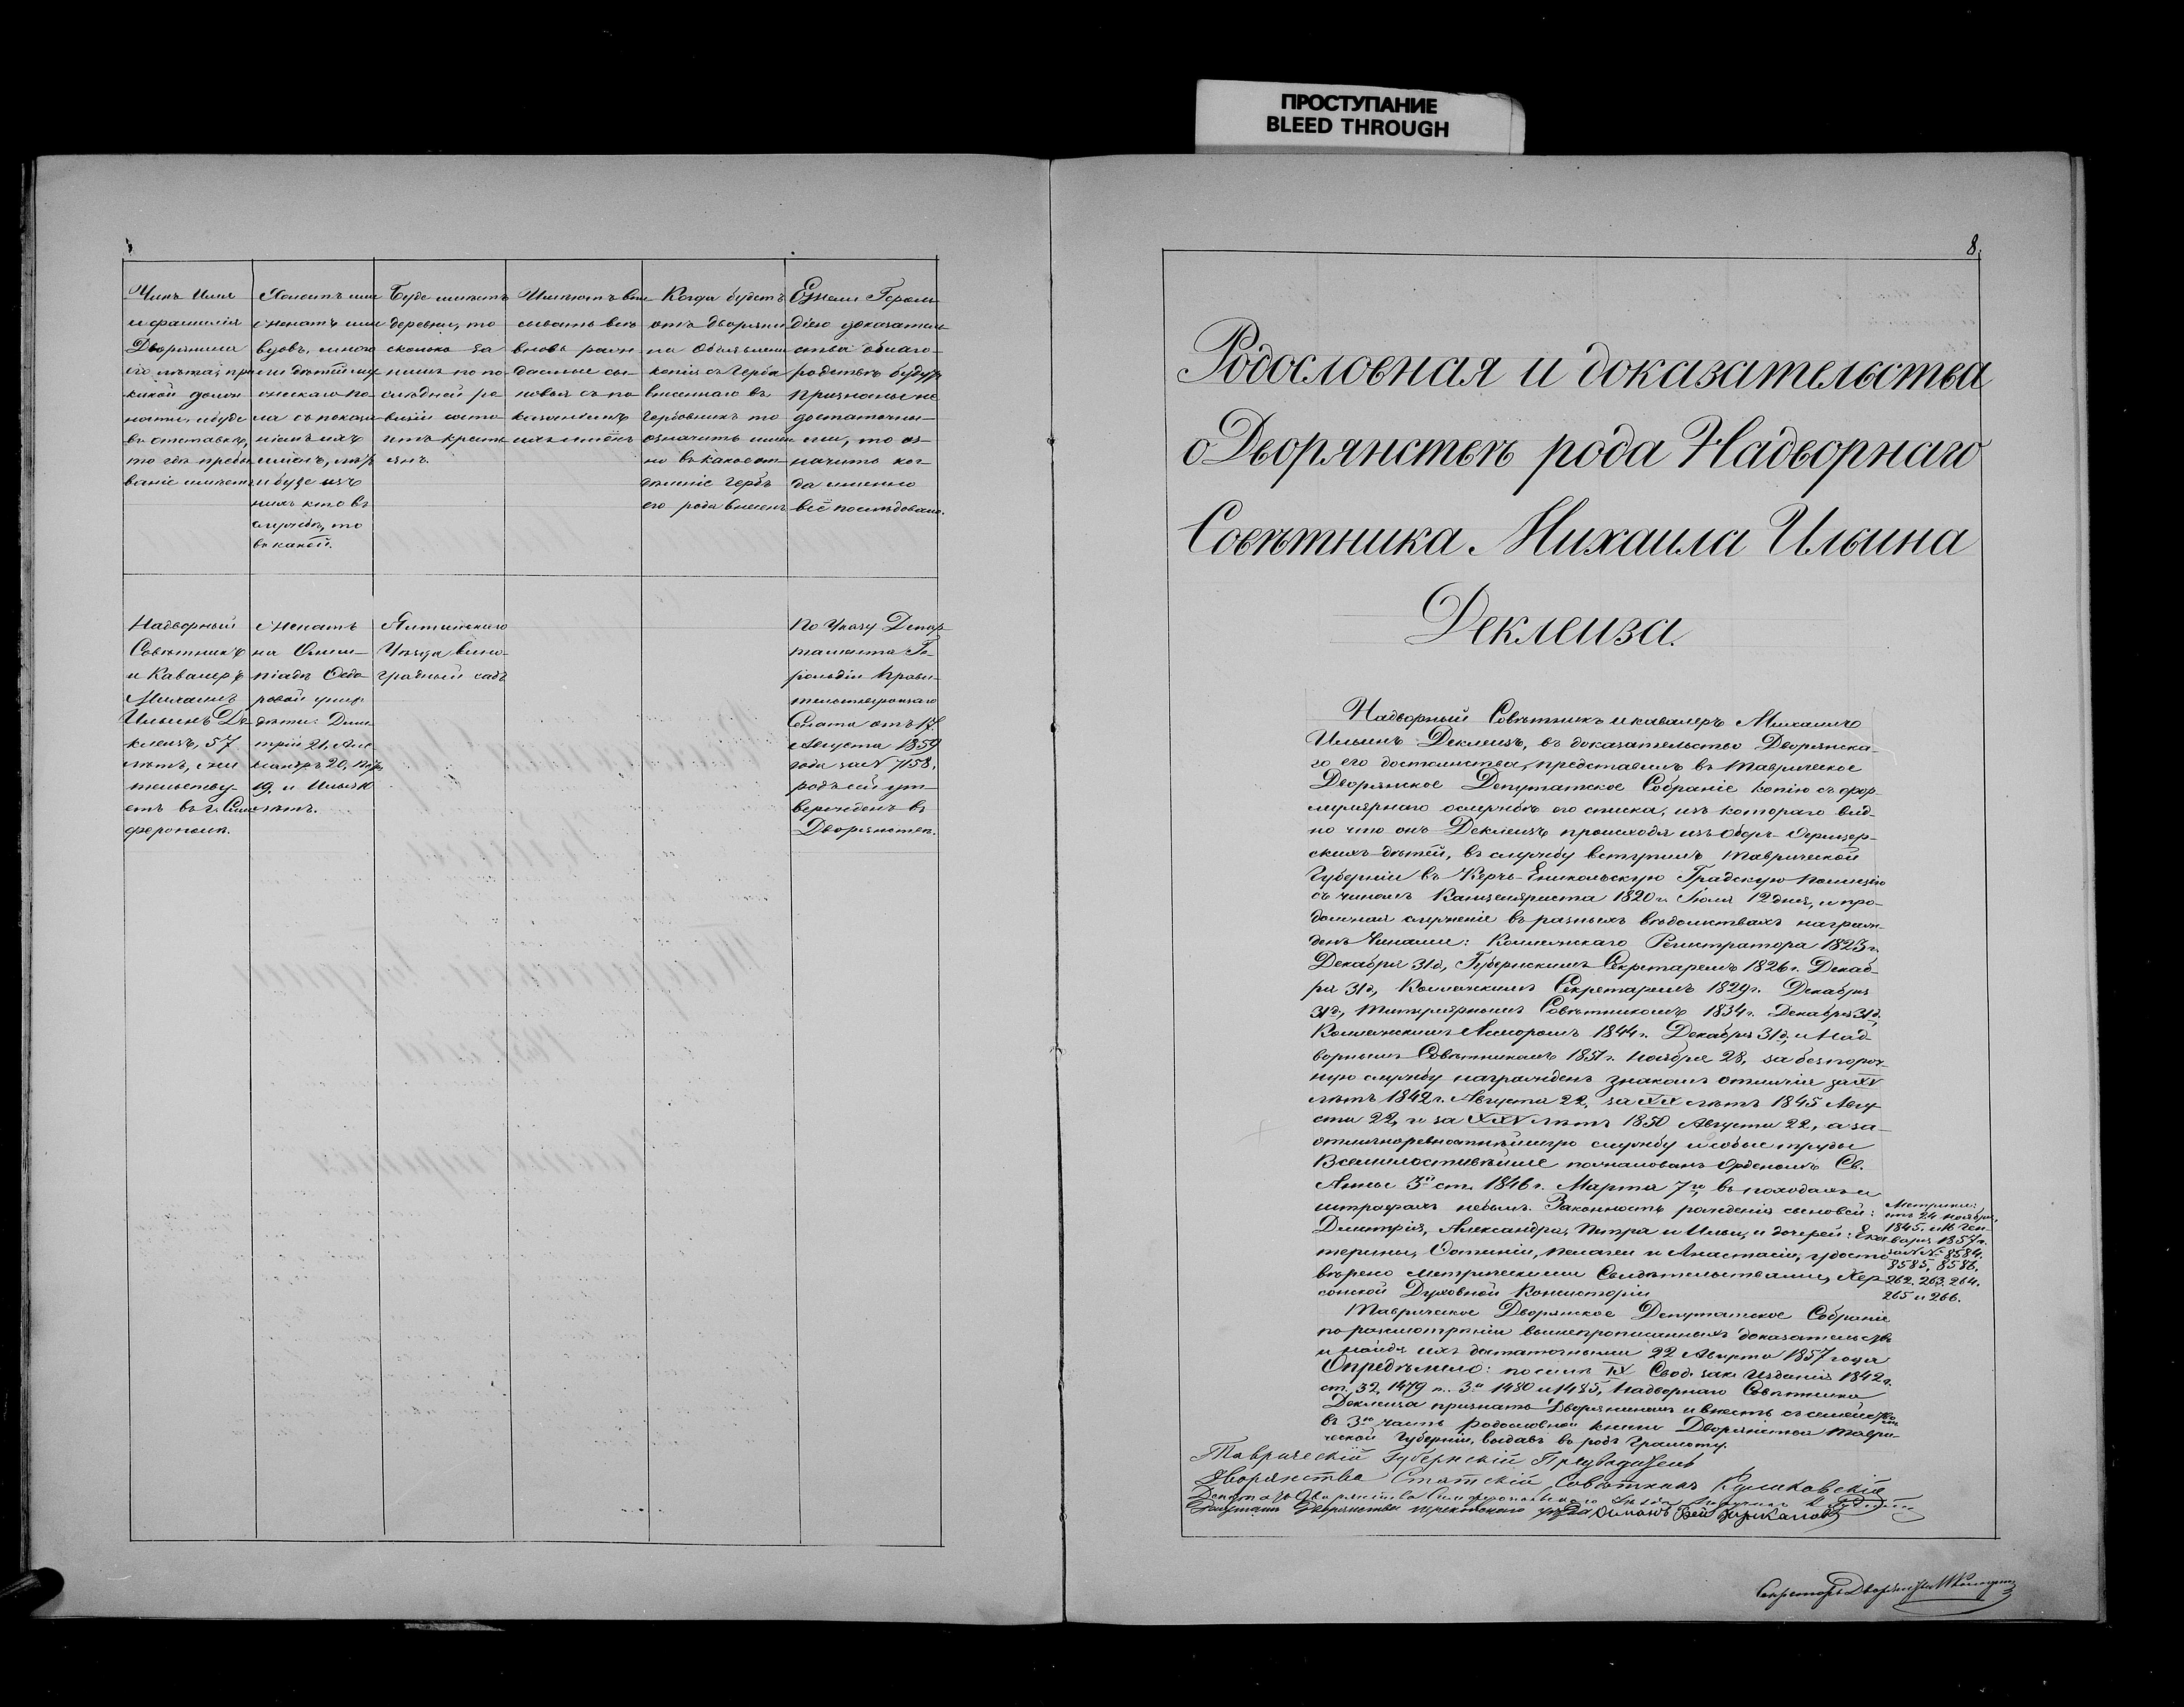 ПРОСТУПАНИЕ
BLEED THROUGH
Чинъ Имя
и фамилія
Дворянина
его лѣта, при
какой долж
ности, и буде
въ отставкѣ,
то гдѣ пребы
ваніе имѣетъ
Холостъ или
женатъ или
вдовъ, много
ли дѣтей му
жескаго по
ла съ показа
ніемъ ихъ
имянъ, лѣтъ
и буде изъ
нихъ кто въ
службѣ, то
въ какой.
Буде имѣетъ
деревни, то
сколько за
нимъ по по
слѣдней ре
визіи состо
итъ кресть
янъ.
сывать всѣ
вновь рож
даемые сы
новья съ по
казаніемъ
ихъ имёнъ
Когда будетъ
отъ Дворяни
на Объявлена
копія съ Герба
внесеннаго въ
Гербовникъ то
означить имен
но въ какое от
дѣленіе Гербъ
его рода внесенъ
Ежели Героль
діею доказатель
ства облаго-
родствѣ будутъ
признаны не
достаточны-
ми, то оз-
начить ког-
да именно
всё послѣдовало.
Надворный
Совѣтникъ
и Кавалеръ
Михаилъ
Ильинъ Де-
клеизъ, 57
лѣтъ, жи
тельству-
етъ въ г. Сим
ферополѣ.
Женатъ
на Олим-
піадѣ Ѳедо-
ровой у них
дѣти: Дми
трій 21, Але
ксандръ 20, Петръ
19, и Илья
лѣтъ.
Ялтинскаго
Уѣзда вино-
градный садъ
По Указу Депар-
тамента Ге-
рольдіи Прави-
тельствующаго
Сената отъ 17
Августа 1859
года за N 7158,
родъ сей ут-
вержденъ въ
Дворянствѣ.
8.
Родословная и доказательства
о Дворянствѣ рода Надворнаго
Совѣтника Михаила Ильина
Деклеиза.
Надворный Совѣтникъ и кавалеръ Михаилъ
Ильинъ Деклеизъ, въ доказательство Дворянска-
го его достоинства, представилъ въ Таврическое
Дворянское Депутатское Собраніе копію съ фор-
мулярнаго о службѣ его списка, изъ котораго вид-
но что онъ Деклеизъ происходя изъ Оберъ-Офицер-
скихъ дѣтей, въ службу вступилъ Таврической
Губерніи въ Керчь-Еникольскую Градскую Полицію
съ чиномъ Канцеляриста 1820 г. Іюля 12 дня, и про-
должая служеніе въ разныхъ вѣдомствахъ награж-
денъ Чинами: Коллежскаго Регистратора 1823 г.
Декабря 31 д, Губернскимъ Секретаремъ 1826 г. Декаб-
ря 31 д, Коллежскимъ Секретаремъ 1829 г. Декабря
31 д, Титулярнымъ Совѣтникомъ 1834 г. Декабря 31 д,
Коллежскимъ Ассесоромъ 1844 г. Декабря 31 д, и Над-
ворнымъ Совѣтникомъ 1851 г. Ноября 28, за безпороч-
ную службу награжденъ знакомъ отличія за XV
лѣтъ 1842 г. Августа 22, за XX лѣтъ 1845 Авгу-
ста 22, и за XXV лѣтъ 1850 Августа 22, а за-
отличноревностнѣйшую службу и особые труды
Всемилостивѣйше пожалованъ Орденомъ Св.
Анны 3й ст. 1846 г. Марта 7го, въ походахъ и
штрафахъ небылъ. Законность рожденія сыновей:
Дмитрія, Александра, Петра и Ильи, и дочерей: Ека
терины, Пелагеи и Анастасіи, удосто
вѣрено метрическими Свидѣтельствами, Хер-
сонской Духовной Консисторіи
Метрики:
отъ 24 Ноября,
1845. и 16 Ген-
варя 1857 г.
за N№ 8584.
8585, 8586.
262. 263. 264.
265 и 266.
Таврическое Дворянское Депутатское Собраніе
по разсмотрѣніи вышепрописанныхъ доказательствъ
и найдя ихъ достаточными 22 Августа 1857 года
Опредѣлило: по силѣ IX Свод. зак. Изданія 1842 г.
ст. 32, 1479 п. 3й 1480 и 1485, Надворнаго Совѣтника
Деклеиза признать Дворяниномъ и внесть съ семействомъ
въ 3ю часть родословной книги Дворянства Таври-
ческой Губерніи, выдавъ въ родъ Грамоту.
Таврическій Губернскій Предводитель
Дворянства Статскій Совѣтникъ Куликовскій
Депутатъ Дворянства Симферопольскаго Уѣзда
Депутатъ Дворянства Перекопскаго уѣзда
Секретарь Дворянства